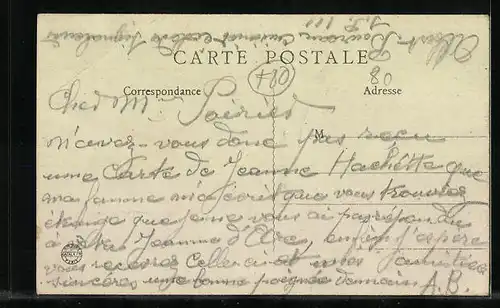 Albert
CARTE POSTALE
480
80
Correspondance
Adresse
Cher Mr Poiriés
M
N'avez-vous donc pas reçu
une Carte de Jeanne Hachette que
ma femme m'écrit que vous trouvez
étrange que je ne vous ai pas répondu
à Jeanne d'Arc, enfin j'espère
vous recevrez celle-ci et mes amitiés
sincères une bonne poignée de main A.B.